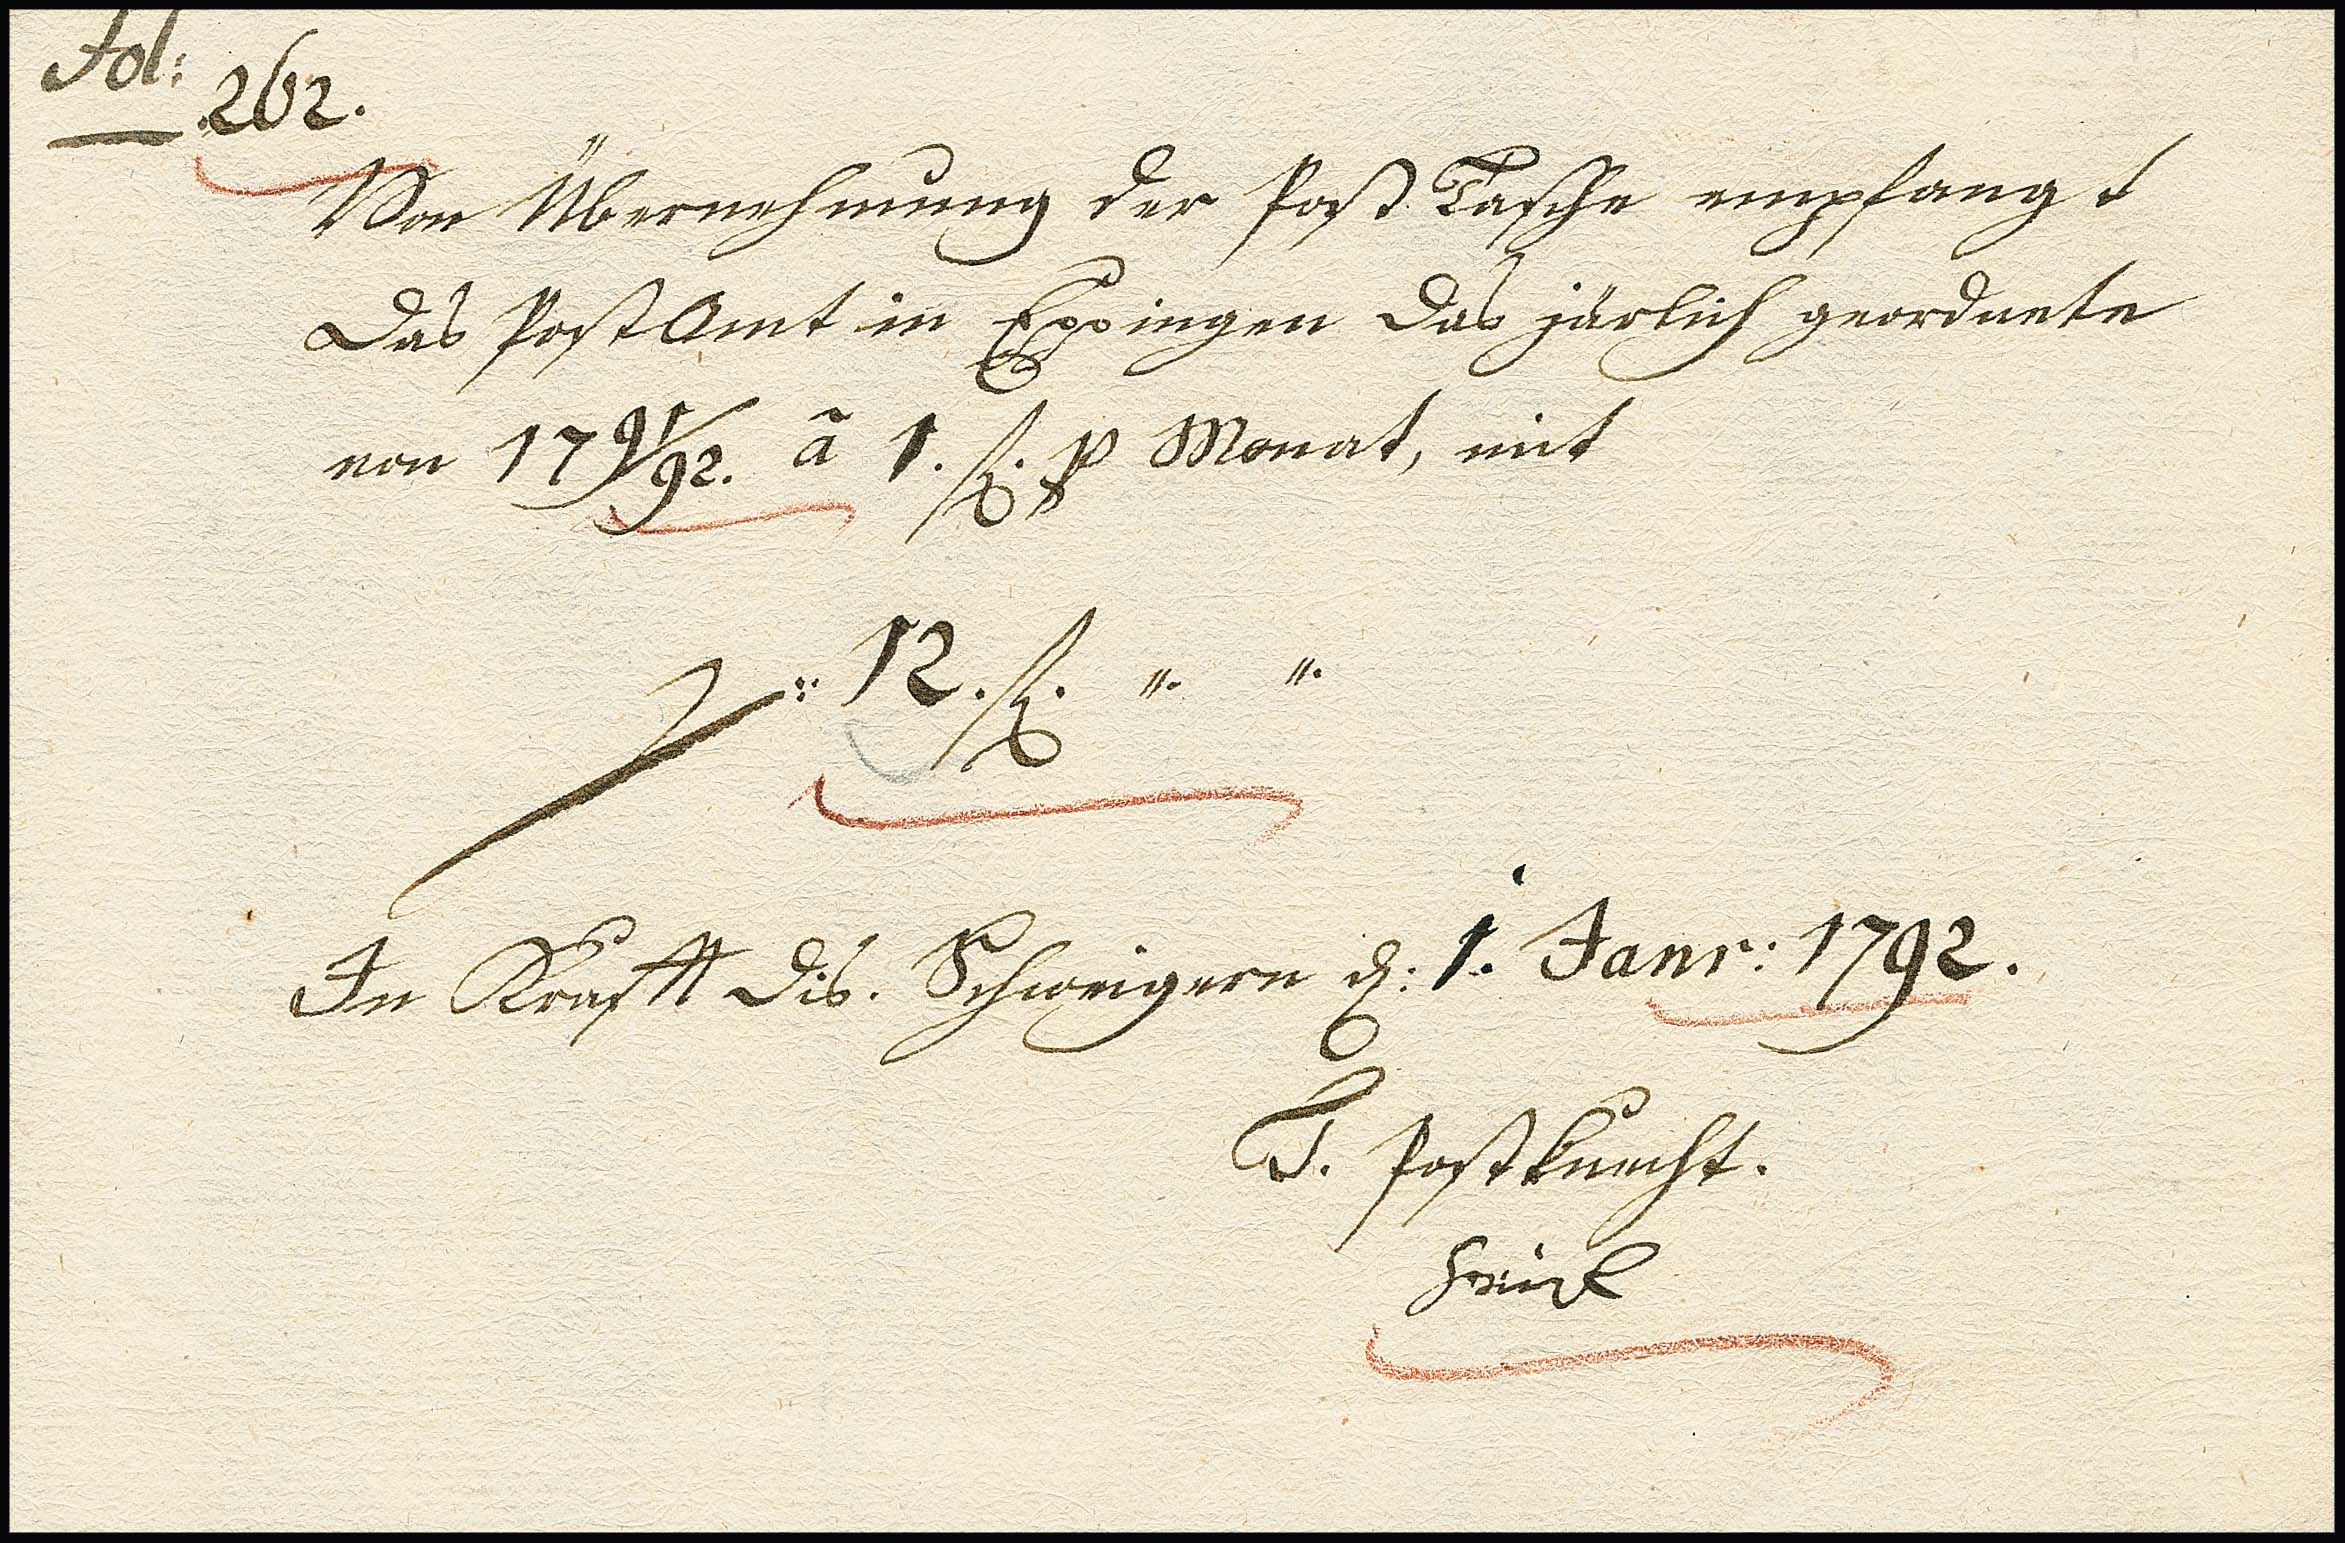 Fol:
262.
Von Übernehmung der Post Tasche empfangt
das Post Amt in Eppingen das järlich geordnete
von 1791/92. â 1. f. p Monat, mit
12. f. " "
In Krafft dis. Schweigern d: 1. Janr: 1792.
T. Postknecht.